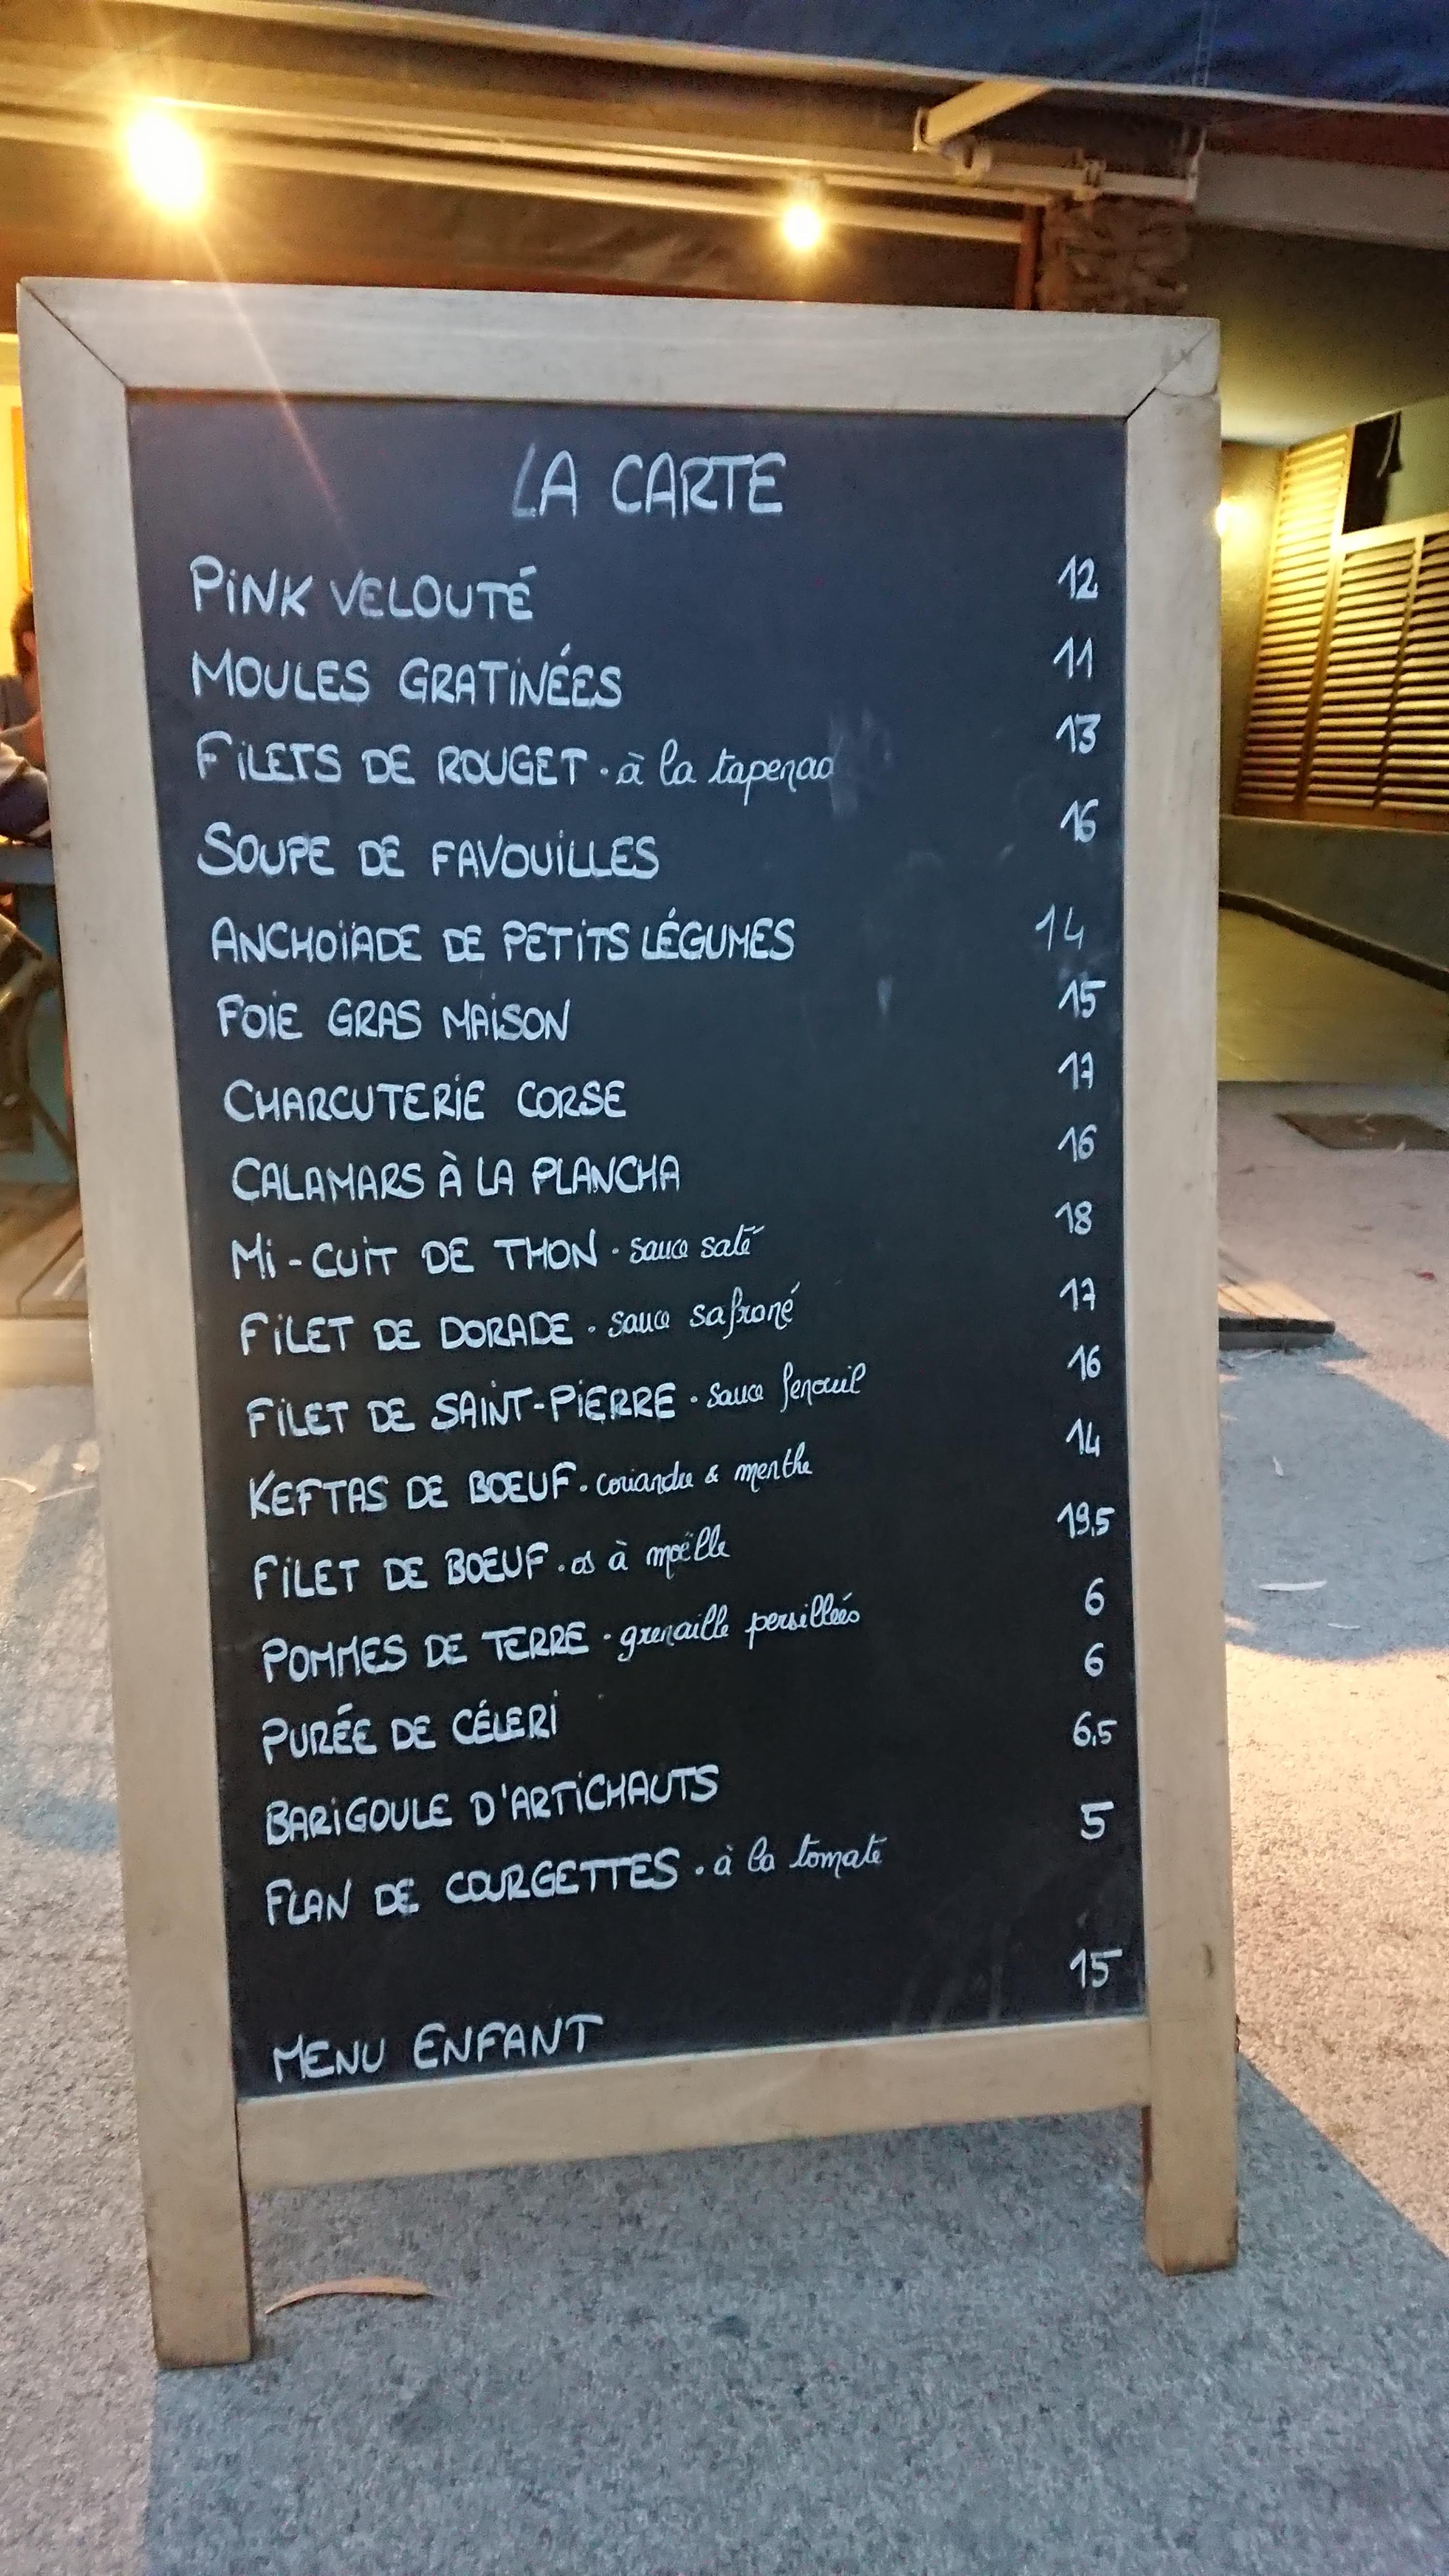 LA CARTE
PINK VELOUTÉ 12
MOULES GRATINÉES 11
FILETS DE ROUGET · à la tapenad 13
SOUPE DE FAVOUILLES 16
ANCHOÏADE DE PETITS LÉGUMES 14
FOIE GRAS MAISON 15
CHARCUTERIE CORSE 17
CALAMARS À LA PLANCHA 16
MI-CUIT DE THON · sauce saté 18
FILET DE DORADE · sauce safrané 17
FILET DE SAINT-PIERRE · sauce fenouil 16
KEFTAS DE BOEUF · coriandre & menthe 14
FILET DE BOEUF · os à moëlle 19,5
POMMES DE TERRE · grenaille persillées 6
PURÉE DE CÉLERI 6
BARIGOULE D'ARTICHAUTS 6,5
FLAN DE COURGETTES · à la tomate 5
MENU ENFANT 15